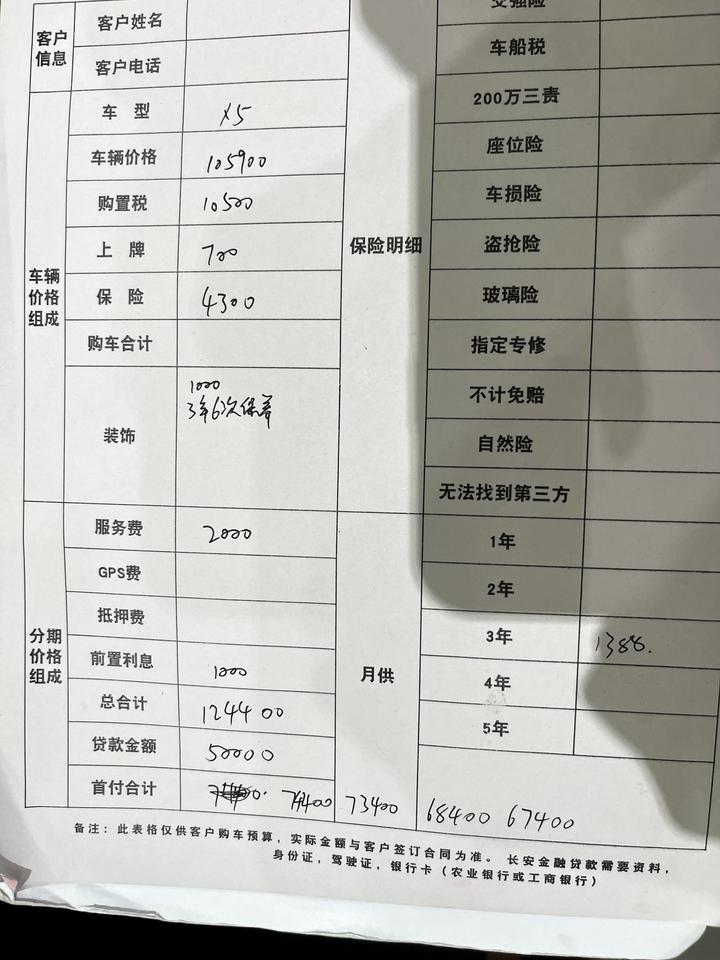 客户信息
客户姓名
客户电话
车辆价格组成
车 型 X5
车辆价格 105900
购置税 10500
上 牌 700
保 险 4300
购车合计
装饰 1000
3年6次保养
分期价格组成
服务费 2000
GPS费
抵押费
前置利息 1000
总合计 124400
贷款金额 50000
首付合计 74400 73400 68400 67400
保险明细
交强险
车船税
200万三责
座位险
车损险
盗抢险
玻璃险
指定专修
不计免赔
自然险
无法找到第三方
月供
1年
2年
3年 1388.
4年
5年
备注：此表格仅供客户购车预算，实际金额与客户签订合同为准。 长安金融贷款需要资料，
身份证，驾驶证，银行卡（农业银行或工商银行）